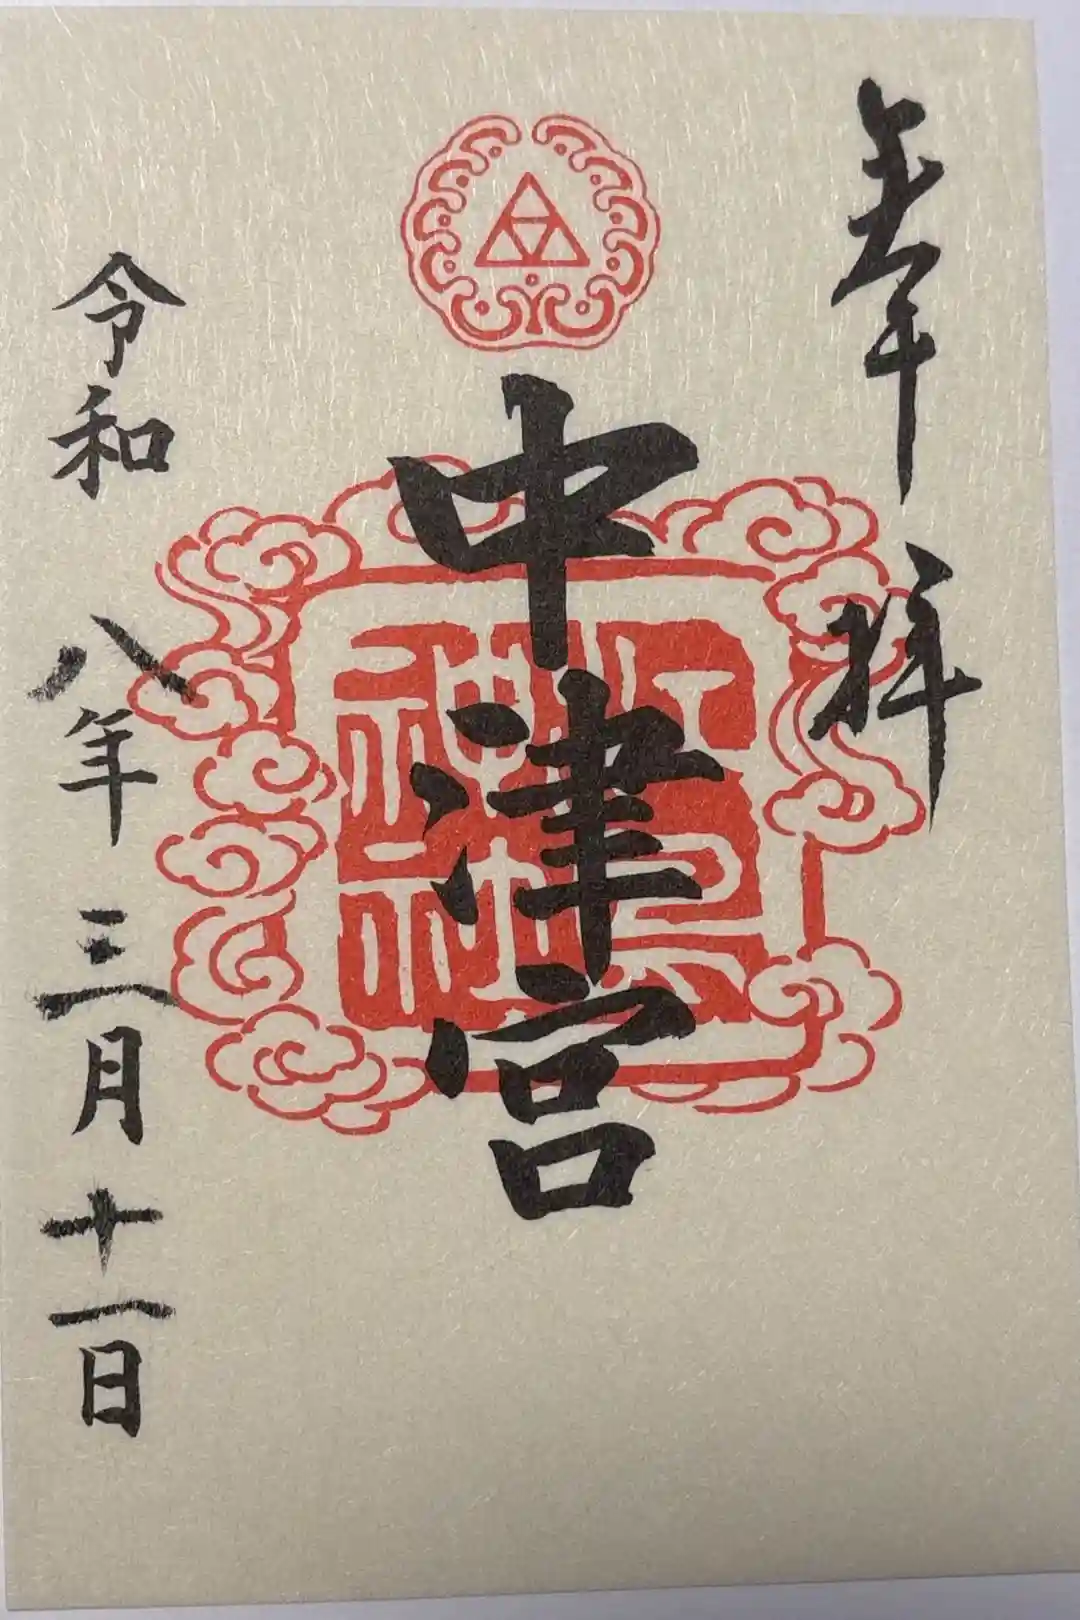 奉拝
中津宮
令和八年三月十一日